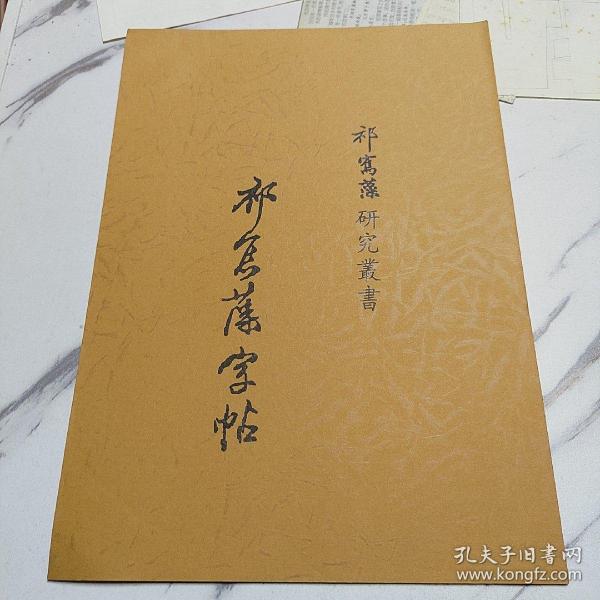 祁寯藻研究叢書
祁寯藻字帖
孔夫子旧书网
www.kongfz.com